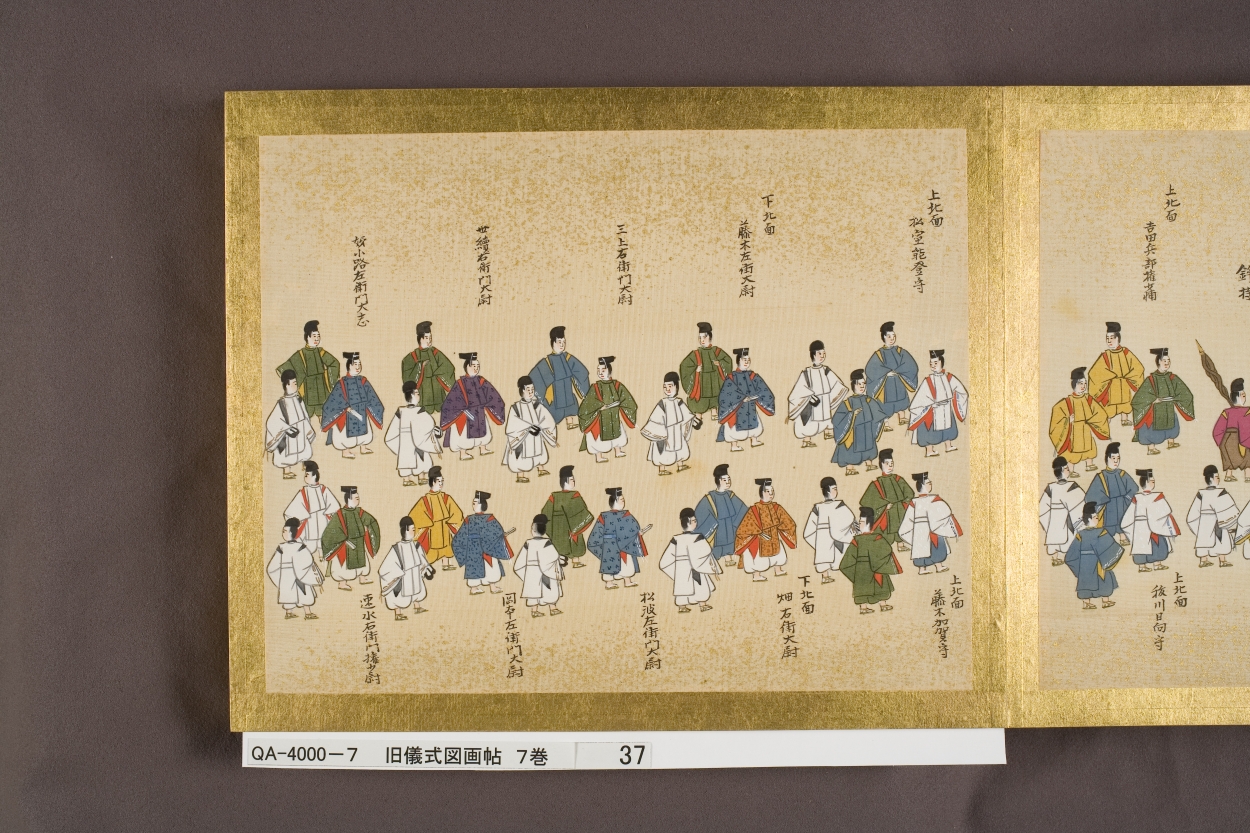 上北面
吉田兵部権少輔
上北面
松室能登守
下北面
藤木左衛門大尉
三上右衛門大尉
世續右衛門大尉
姉小路左衛門大志
上北面
日向守
上北面
藤木加賀守
下北面
畑右衛門大尉
松波左衛門大尉
岡本左衛門大尉
速水右衛門権少尉
QA-4000-7 旧儀式図画帖 7巻 37